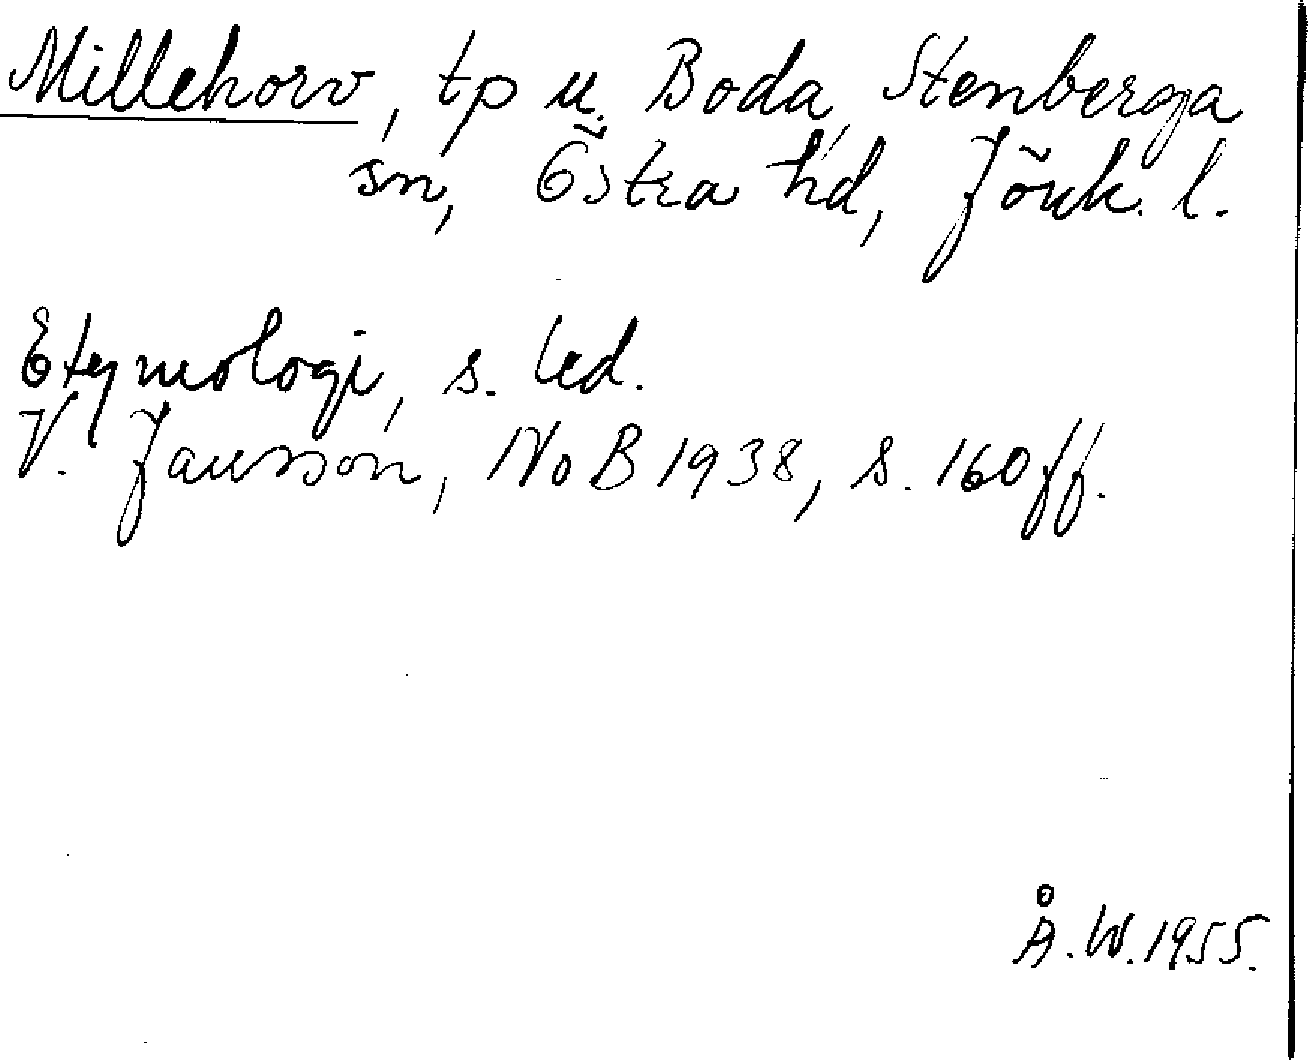 Millehorv, tp u. Boda, Stenberga
sn, Östra hd, Jönk. l.
Etymologi, s. led.
V. Jansson, NoB 1938, s. 160 ff.
Å. W. 1955.